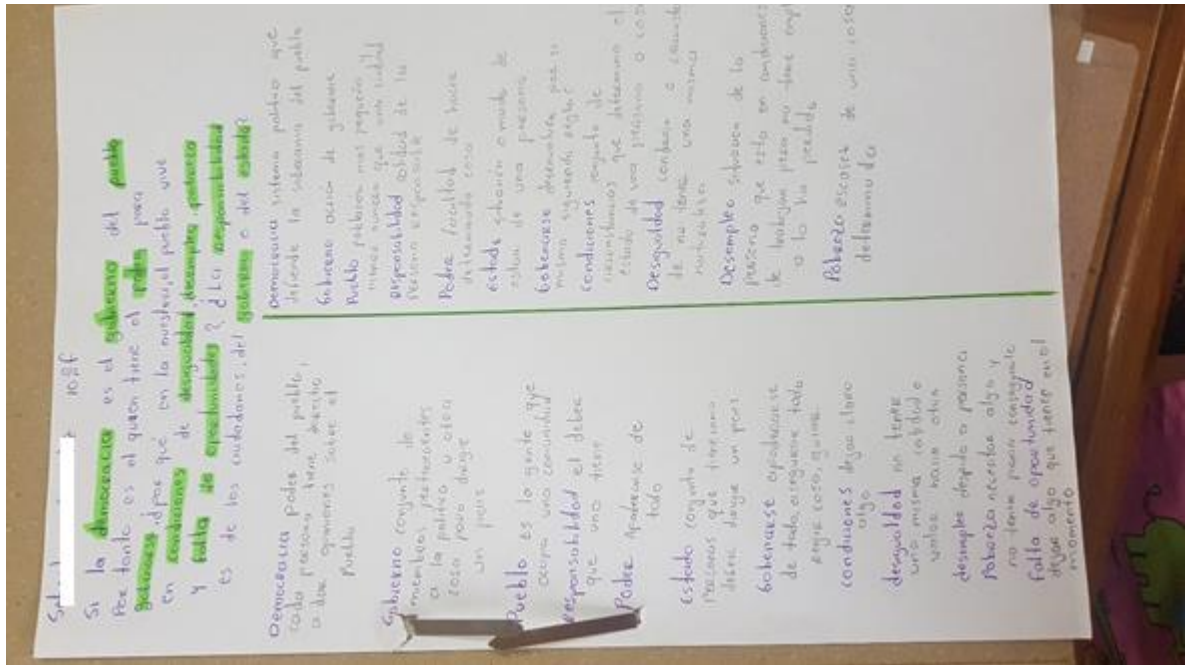 Si la democracia es el gobierno del pueblo
Por tanto es el quien tiene el poder para
gobernarse, ¿por qué en la nuestra, el pueblo vive
en condiciones de desigualdad, desempleo, pobreza
y falta de oportunidades? ¿La responsabilidad
es de los ciudadanos, del gobierno o del estado?
Democracia poder del pueblo,
cada persona tiene derecho
a dar opiniones sobre el
pueblo
Gobierno conjunto de
miembros pertenecientes
a la política u otra
cosa para dirigir
un país
Pueblo es la gente que
ocupa una comunidad
responsabilidad el deber
que uno tiene
Poder Apoderarse de
todo
Estado conjunto de
personas que tienen como
dirigir un país
Gobernarse
de todo, asegurarse todo
exigir cosa, quitar
condiciones dejar claro
algo
desigualdad no tener
una misma calidad o
valor hacia otra
desempleo despido a persona
Pobreza necesitar algo y
no tener para conseguirlo
Falta de oportunidad
dejar algo que tienes en el
momento
Democracia sistema político que
defiende la soberanía del pueblo
Gobierno acción de gobierno
Pueblo población más pequeña y
menos que una ciudad
Responsabilidad calidad de la
persona responsable
Poder facultad de hacer
determinada cosa
estado situación o modo de
estar de una persona
Gobernarse desenvolver por si
mismo siguiendo reglas
Condiciones conjunto de
circunstancias que determinan el
estado de una persona o cosa
Desigualdad
de no tener una misma
naturaleza
Desempleo situación de la
persona que está en condiciones
de trabajar pero no tiene
o lo ha perdido
Pobreza escasez de unas cosas
determinadas